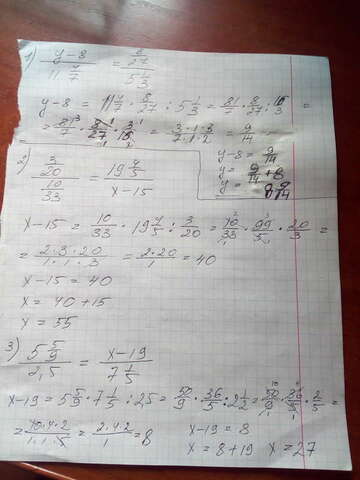 1) (y-8)/(11 4/7) = (8/27)/(5 1/3)
y-8 = 11 4/7 · 8/27 : 5 1/3 = 81/7 · 8/27 : 16/3 =
= 81/7 · 8/27 · 3/16 = (3·1·3)/(7·1·2) = 9/14
y-8 = 9/14
y = 9/14 + 8
y = 8 9/14
2) (3/20)/(10/33) = (19 4/5)/(x-15)
x-15 = 10/33 · 19 4/5 : 3/20 = 10/33 · 99/5 · 20/3 =
= (2·3·20)/(1·1·3) = (2·20)/1 = 40
x-15 = 40
x = 40+15
x = 55
3) (5 5/9)/(2,5) = (x-19)/(7 1/5)
x-19 = 5 5/9 · 7 1/5 : 25 = 50/9 · 36/5 : 2 1/2 = 50/9 · 36/5 · 2/5 =
= (10·4·2)/(1·1·5) = (2·4·2)/1 = 8
x-19 = 8
x = 8+19 x = 27